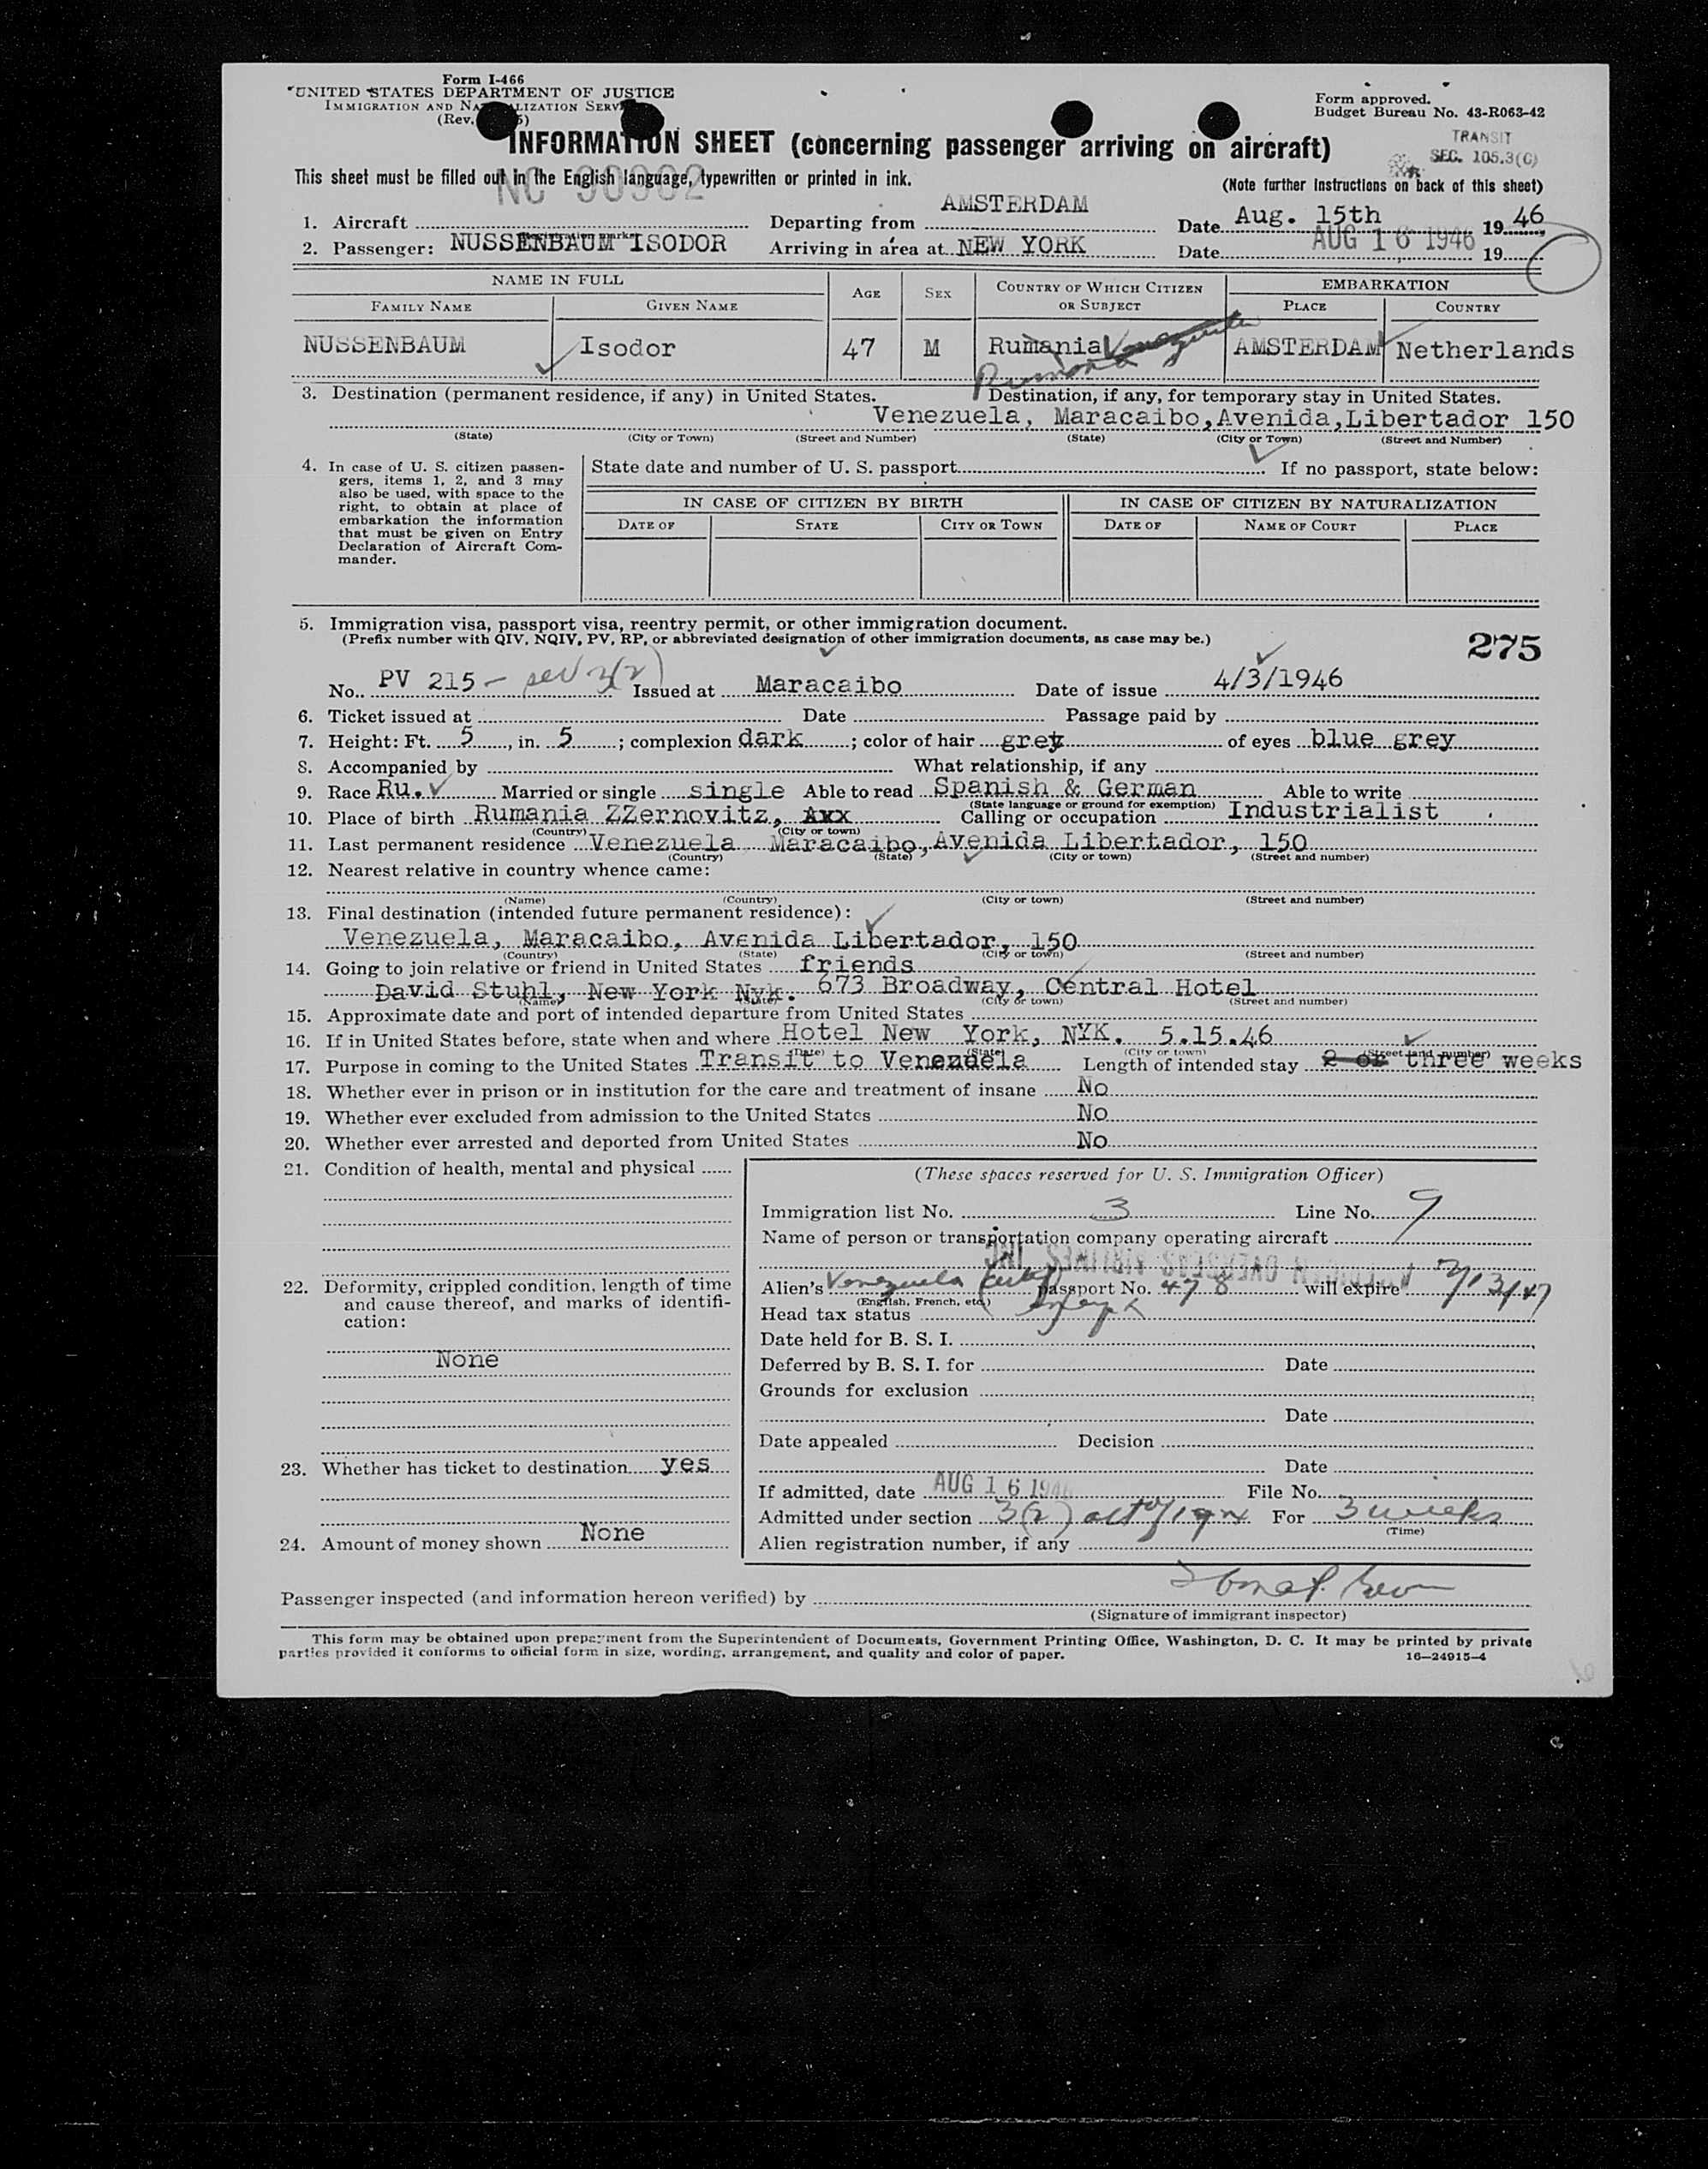 Form I-466
UNITED STATES DEPARTMENT OF JUSTICE
IMMIGRATION AND NATURALIZATION SERV
(Rev.
Form approved.
Budget Bureau No. 43-R063-42
INFORMATION SHEET (concerning passenger arriving on aircraft)
TRANSIT
SEC. 105.3(C)
This sheet must be filled out in the English language, typewritten or printed in ink.
(Note further instructions on back of this sheet)
NC 90902
1. Aircraft Departing from AMSTERDAM Date Aug. 15th 1946
2. Passenger: NUSSENBAUM ISODOR Arriving in area at NEW YORK Date AUG 16 1946 19
NAME IN FULL AGE SEX COUNTRY OF WHICH CITIZEN OR SUBJECT EMBARKATION
FAMILY NAME GIVEN NAME PLACE COUNTRY
NUSSENBAUM Isodor 47 M Rumania Venezuela AMSTERDAM Netherlands
3. Destination (permanent residence, if any) in United States. Destination, if any, for temporary stay in United States.
Venezuela, Maracaibo,Avenida,Libertador 150
(State) (City or Town) (Street and Number) (State) (City or Town) (Street and Number)
4. In case of U. S. citizen passen-
gers, items 1, 2, and 3 may
also be used, with space to the
right, to obtain at place of
embarkation the information
that must be given on Entry
Declaration of Aircraft Com-
mander.
State date and number of U. S. passport If no passport, state below:
IN CASE OF CITIZEN BY BIRTH IN CASE OF CITIZEN BY NATURALIZATION
DATE OF STATE CITY OR TOWN DATE OF NAME OF COURT PLACE
5. Immigration visa, passport visa, reentry permit, or other immigration document.
(Prefix number with QIV, NQIV, PV, RP, or abbreviated designation of other immigration documents, as case may be.)
275
No. PV 215 - sec 3(2) Issued at Maracaibo Date of issue 4/3/1946
6. Ticket issued at Date Passage paid by
7. Height: Ft. 5, in. 5; complexion dark; color of hair grey of eyes blue grey
8. Accompanied by What relationship, if any
9. Race Ru. Married or single single Able to read Spanish & German Able to write
(State language or ground for exemption)
10. Place of birth Rumania ZZernovitz, Axx Calling or occupation Industrialist
(Country) (City or town)
11. Last permanent residence Venezuela Maracaibo,Avenida Libertador, 150
(Country) (State) (City or town) (Street and number)
12. Nearest relative in country whence came:
(Name) (Country) (City or town) (Street and number)
13. Final destination (intended future permanent residence):
Venezuela, Maracaibo, Avenida Libertador, 150
(Country) (State) (City or town) (Street and number)
14. Going to join relative or friend in United States friends
David Stuhl, New York Nyk. 673 Broadway, Central Hotel
(Name) (State) (City or town) (Street and number)
15. Approximate date and port of intended departure from United States
16. If in United States before, state when and where Hotel New York, NYK. 5.15.46
(Date) (State) (City or town) (Street and number)
17. Purpose in coming to the United States Transit to Venezuela Length of intended stay 2 or three weeks
18. Whether ever in prison or in institution for the care and treatment of insane No
19. Whether ever excluded from admission to the United States No
20. Whether ever arrested and deported from United States No
21. Condition of health, mental and physical
22. Deformity, crippled condition, length of time
and cause thereof, and marks of identifi-
cation:
None
23. Whether has ticket to destination yes
24. Amount of money shown None
(These spaces reserved for U. S. Immigration Officer)
Immigration list No. 3 Line No. 9
Name of person or transportation company operating aircraft
AMERICAN OVERSEAS AIRLINES INC
Alien's Venezuela passport No. 478 will expire
(English, French, etc.)
Head tax status
Date held for B. S. I.
Deferred by B. S. I. for Date
Grounds for exclusion
Date
Date appealed Decision
Date
If admitted, date AUG 16 1946 File No.
Admitted under section 3(2) act of 1924 For 3 weeks
(Time)
Alien registration number, if any
Passenger inspected (and information hereon verified) by
(Signature of immigrant inspector)
This form may be obtained upon prepayment from the Superintendent of Documents, Government Printing Office, Washington, D. C. It may be printed by private
parties provided it conforms to official form in size, wording, arrangement, and quality and color of paper.
16—24915-4